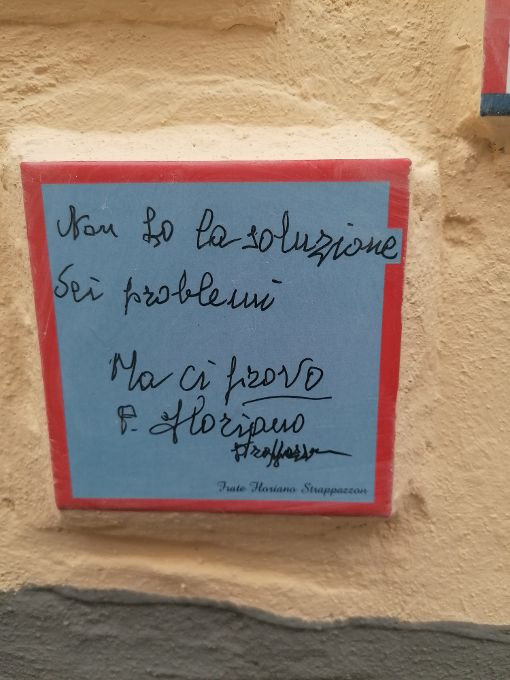 Non ho la soluzione
dei problemi
Ma ci provo
F. Floriano
Strappazzon
Frate Floriano Strappazzon